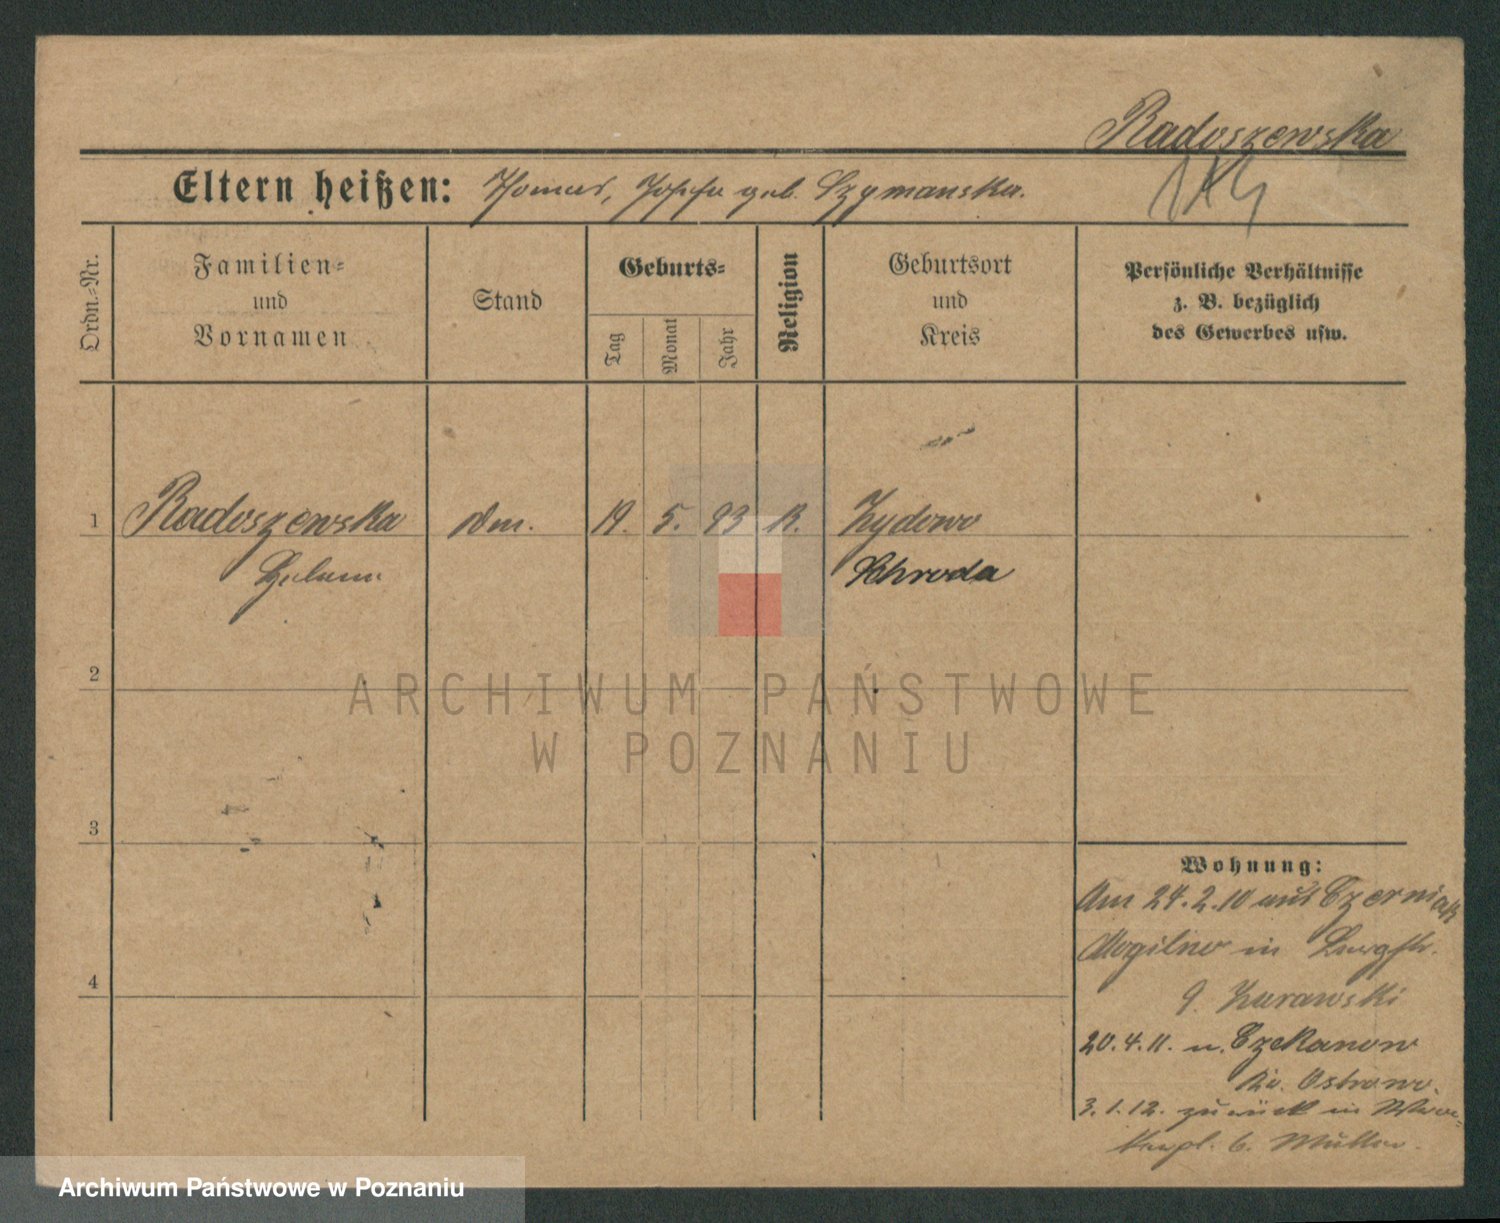 Radoszewska
Eltern heißen: Thomas, Josefa geb. Szymanska.
Ordn.-Nr.
Familien-
und
Vornamen
Stand
Geburts-
Tag
Monat
Jahr
Religion
Geburtsort
und
Kreis
Persönliche Verhältnisse
z. B. bezüglich
des Gewerbes usw.
1 Radoszewska 19. 5. 93 Zydowo
Schroda
2
3
4
Wohnung:
Am 24.2.10 aus Czerniak
Mogilno in
9. Zurawski
20.4.11. n. Czekanow
Kr. Ostrowo.
3.1.12. zurück in
b. Müller.
ARCHIWUM PAŃSTWOWE
W POZNANIU
Archiwum Państwowe w Poznaniu